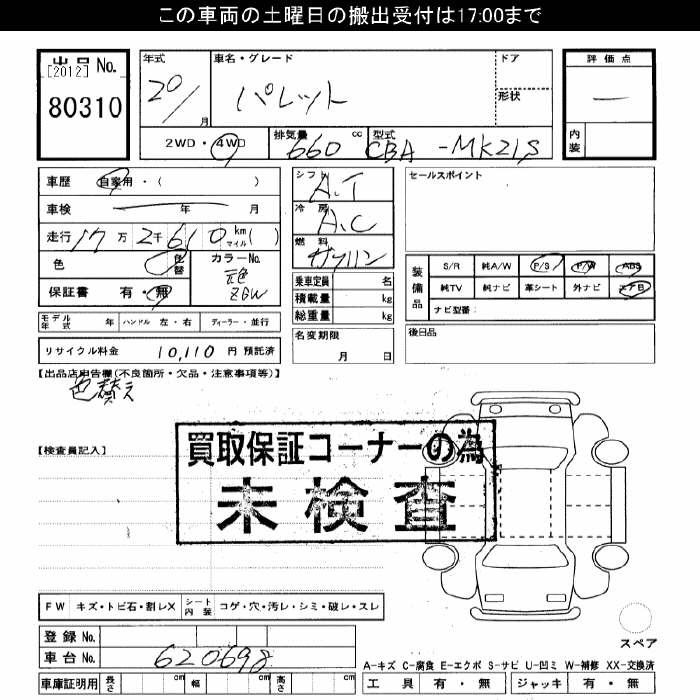 この車両の土曜日の搬出受付は17:00まで
出品 No.
[2012]
80310
年式 20/ 月
車名・グレード パレット
ドア
形状
2WD・4WD
排気量 660 cc
型式 CBA-MK21S
評価点
内装
車歴 自家用・( )
車検 年 月
走行 17万 2千 610 km マイル ( )
色 色替
カラーNo. 元色 ZGW
保証書 有・無
シフト A.T
冷房 A.C
燃料 ガソリン
乗車定員 名
積載量 kg
総重量 kg
セールスポイント
装備品
S/R 純A/W P/S P/W ABS
純TV 純ナビ 革シート 外ナビ エアB
ナビ型番:
モデル年式 年 ハンドル 左・右 ディーラー・並行
名変期限
月 日
後日品
リサイクル料金 10,110 円 預託済
【出品店申告欄(不良箇所・欠品・注意事項等)】
色替え
【検査員記入】
買取保証コーナーの為
未検査
FW キズ・トビ石・割レX シート内装 コゲ・穴・汚レ・シミ・破レ・スレ
登録 No.
車台 No. 620698
車庫証明用 長さ cm 幅 cm 高さ cm
スペア
A-キズ C-腐食 E-エクボ S-サビ U-凹ミ W-補修 XX-交換済
工具 有・無 ジャッキ 有・無